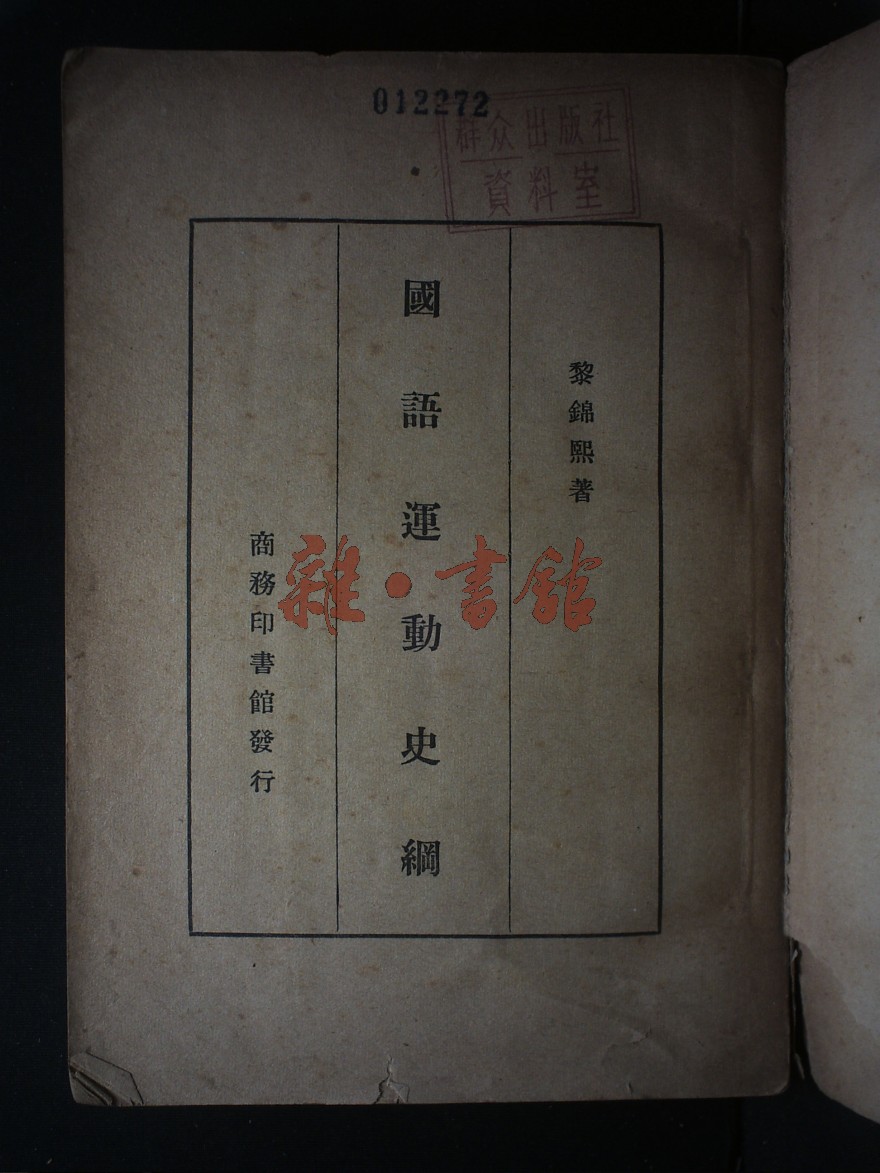 012272
群众出版社
資料室
黎錦熙著
國語運動史綱
商務印書館發行
雜·書館